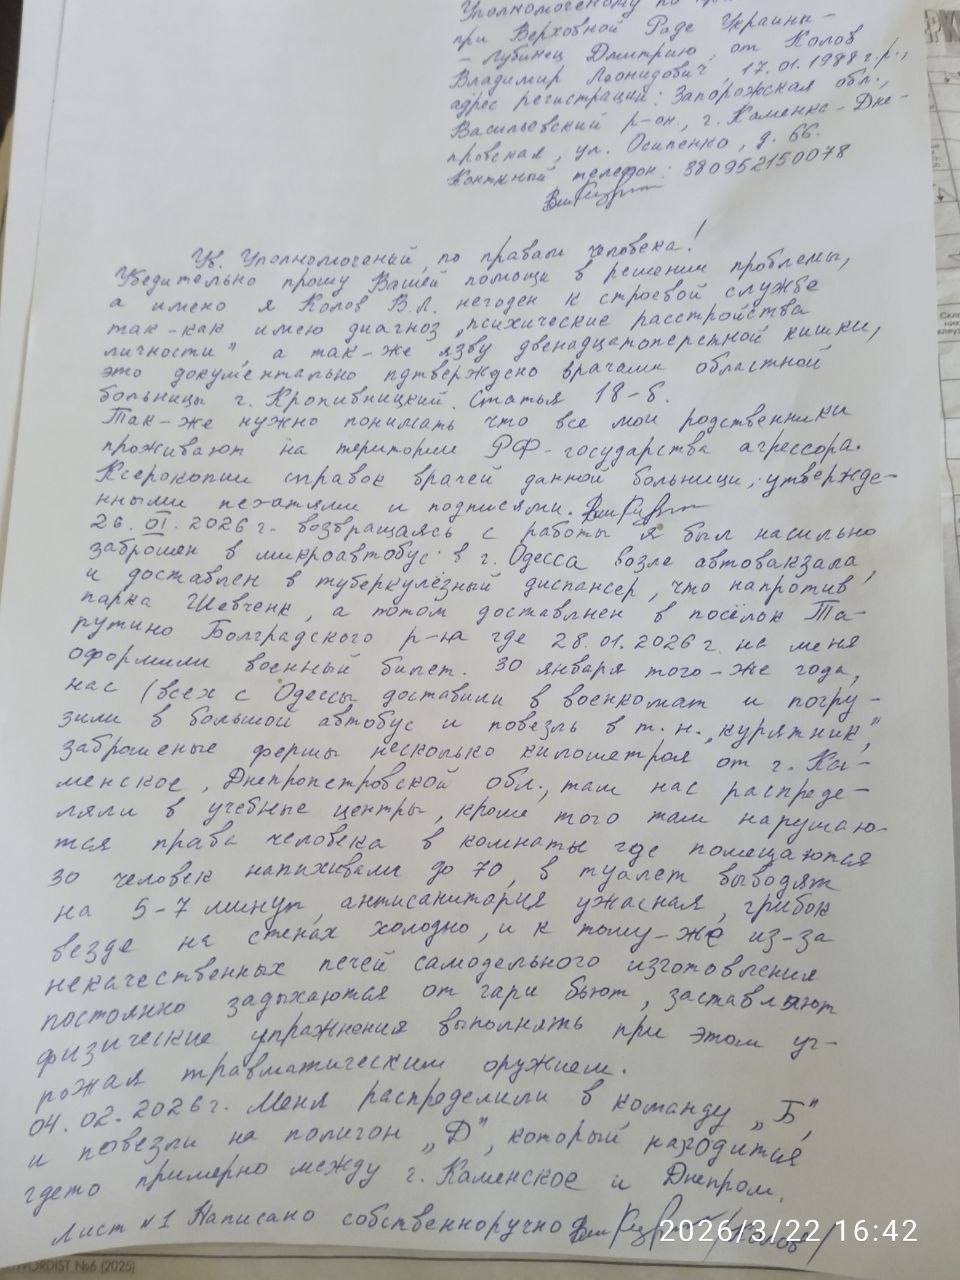 Уполномоченому по
при Верховной Раде Украины -
- Лубинец Дмитрию, от Колов
Владимир Леонидович, 17.01.1988 г.р.,
адрес регистраций: Запорожская обл.,
Васильевский р-он., г. Каменка-Дне-
провская, ул. Осипенко, д. 66.
Конткный телефон: 380952150078
Ув. Уполномоченый, по правам человека!
Убедительно прошу Вашей помощи в решении проблемы,
а имено я Колов В.Л. негоден к строевой службе
так-как имею диагноз „психические расстройства
личности", а так-же язву двенадцатоперстной кишки,
это документально пдтверждено врачами областной
больницы г. Кропивницкий. Статья 18-б.
Так-же нужно понимать что все мои родственники
проживают на територии РФ - государства агрессора.
Ксерокопии справок врачей данной больници, утвержде-
нными печатями и подписями.
26.01.2026 г. возвращаясь с работы я был насильно
заброшен в микроавтобус в г. Одесса возле автовакзала,
и доставлен в туберкулёзный диспансер, что напротив
парка Шевченк, а потом доставлнен в посёлок Та-
рутино Болградского р-на где 28.01.2026 г. на меня
оформили военный билет. 30 января того-же года,
нас (всех с Одессы доставили в военкомат и погру-
зили в большой автобус и повезль в т.н. „курятник,"
заброшеные фермы несколько километров от г. Ка-
менское, Днепропетровской обл., там нас распреде-
ляли в учебные центры, кроме того там нарушаю-
тся права человека в комнаты где помещаются
30 человек напихивали до 70, в туалет выводят
на 5-7 минут, антисанитария ужасная, грибок
везде на стенах холодно, и к тому-же из-за
некачественных печей самодельного изготовления
постоянно задыхаются от гари бьют, заставляют
физические упражнения выполнять при этом уг-
рожая травматическим оружием.
04.02.2026 г. Меня распределили в команду „Б",
и повезли на полигон „Д", который находится
гдето примерно между г. Каменское и Днепром.
Лист №1 Написано собственноручно /Колов/
2026/3/22 16:42
WORDIST №6 (2025)